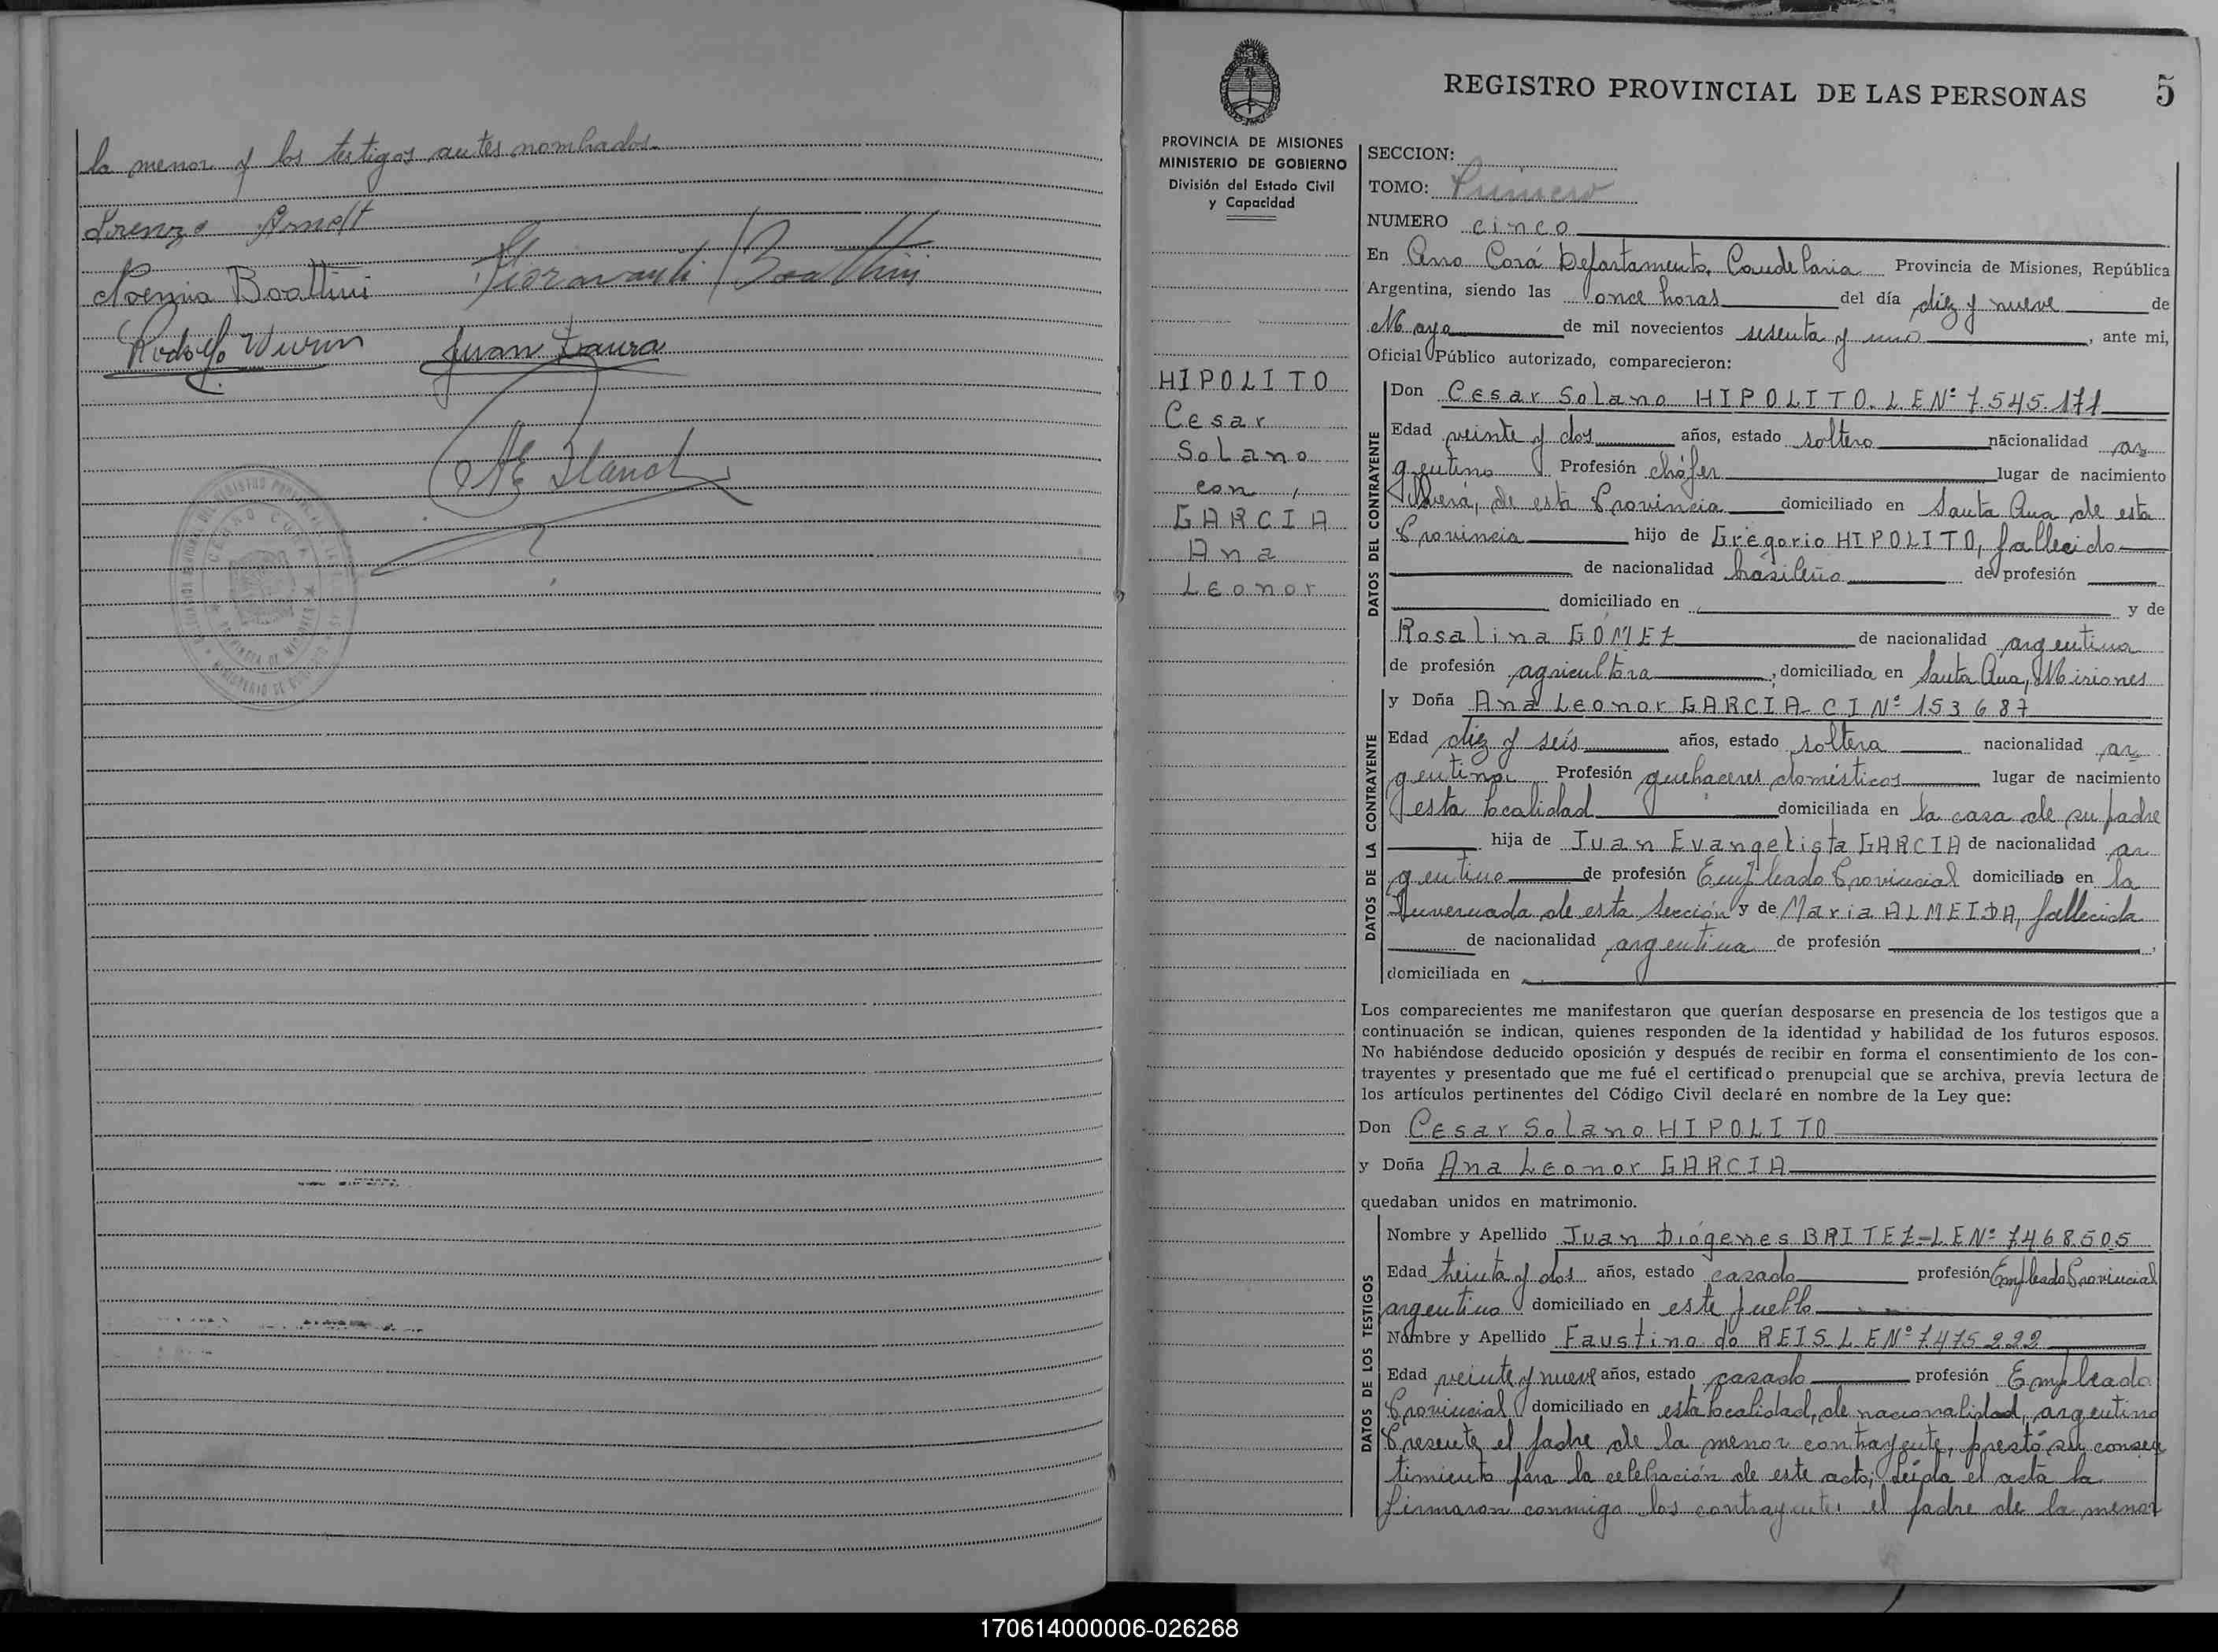 la menor y los testigos antes nombrados.
Lorenzo Arndt
Noemia Boattini Fioravanti Boattini
Rodolfo Juan Zaura
CERRO CORA
REGISTRO PROVINCIAL DE LAS PERSONAS 5
PROVINCIA DE MISIONES
MINISTERIO DE GOBIERNO
División del Estado Civil
y Capacidad
HIPOLITO
Cesar
Solano
con
GARCIA
Ana
Leonor
SECCION:
TOMO: Primero
NUMERO cinco
En Cerro Corá Departamento Candelaria Provincia de Misiones, República
Argentina, siendo las once horas del día diez y nueve de
Mayo de mil novecientos sesenta y uno, ante mi,
Oficial Público autorizado, comparecieron:
DATOS DEL CONTRAYENTE
Don Cesar Solano HIPOLITO. L E Nº 7.545.171
Edad veinte y dos años, estado soltero nacionalidad ar
gentino Profesión chófer lugar de nacimiento
de esta Provincia domiciliado en Santa Ana de esta
Provincia hijo de Gregorio HIPOLITO, fallecido
de nacionalidad brasileño de profesión
domiciliado en y de
Rosalina GÓMEZ de nacionalidad argentina
de profesión agricultora, domiciliada en Santa Ana, Misiones
DATOS DE LA CONTRAYENTE
y Doña Ana Leonor GARCIA- C I Nº 153687
Edad diez y seis años, estado soltera nacionalidad ar
gentina Profesión quehaceres domésticos lugar de nacimiento
esta localidad domiciliada en la casa de su padre
hija de Juan Evangelista GARCIA de nacionalidad ar
gentino de profesión Empleado Provincial domiciliado en la
Invernada de esta Sección y de Maria ALMEIDA, fallecida
de nacionalidad argentina de profesión ,
domiciliada en
Los comparecientes me manifestaron que querían desposarse en presencia de los testigos que a
continuación se indican, quienes responden de la identidad y habilidad de los futuros esposos.
No habiéndose deducido oposición y después de recibir en forma el consentimiento de los con-
trayentes y presentado que me fué el certificado prenupcial que se archiva, previa lectura de
los artículos pertinentes del Código Civil declaré en nombre de la Ley que:
Don Cesar Solano HIPOLITO
y Doña Ana Leonor GARCIA
quedaban unidos en matrimonio.
DATOS DE LOS TESTIGOS
Nombre y Apellido Juan Diógenes BRITEZ-L E Nº 7468505
Edad treinta y dos años, estado casado profesión Empleado Provincial
argentino domiciliado en este pueblo
Nombre y Apellido Faustino do REIS- L E Nº 7475222
Edad veinte y nueve años, estado casado profesión Empleado
Provincial domiciliado en esta localidad, de nacionalidad argentino
Presente el padre de la menor contrayente, prestó su consen
timiento para la celebración de este acto; Leída el acta la
firmaron conmigo los contrayentes el padre de la menor
170614000006-026268